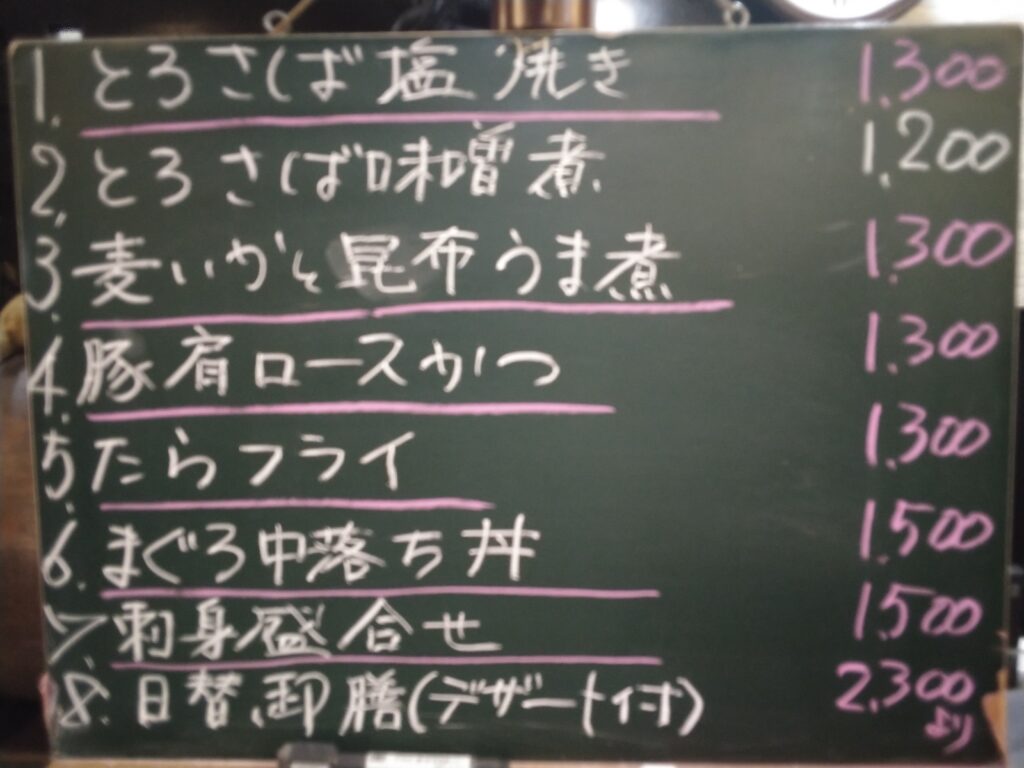 1. とろさば塩焼き 1.300
2. とろさば味噌煮 1.200
3. 麦いかと昆布うま煮 1.300
4. 豚肩ロースかつ 1.300
5. たらフライ 1.300
6. まぐろ中落ち丼 1.500
7. 刺身盛合せ 1.500
8. 日替御膳(デザート付) 2.300
より